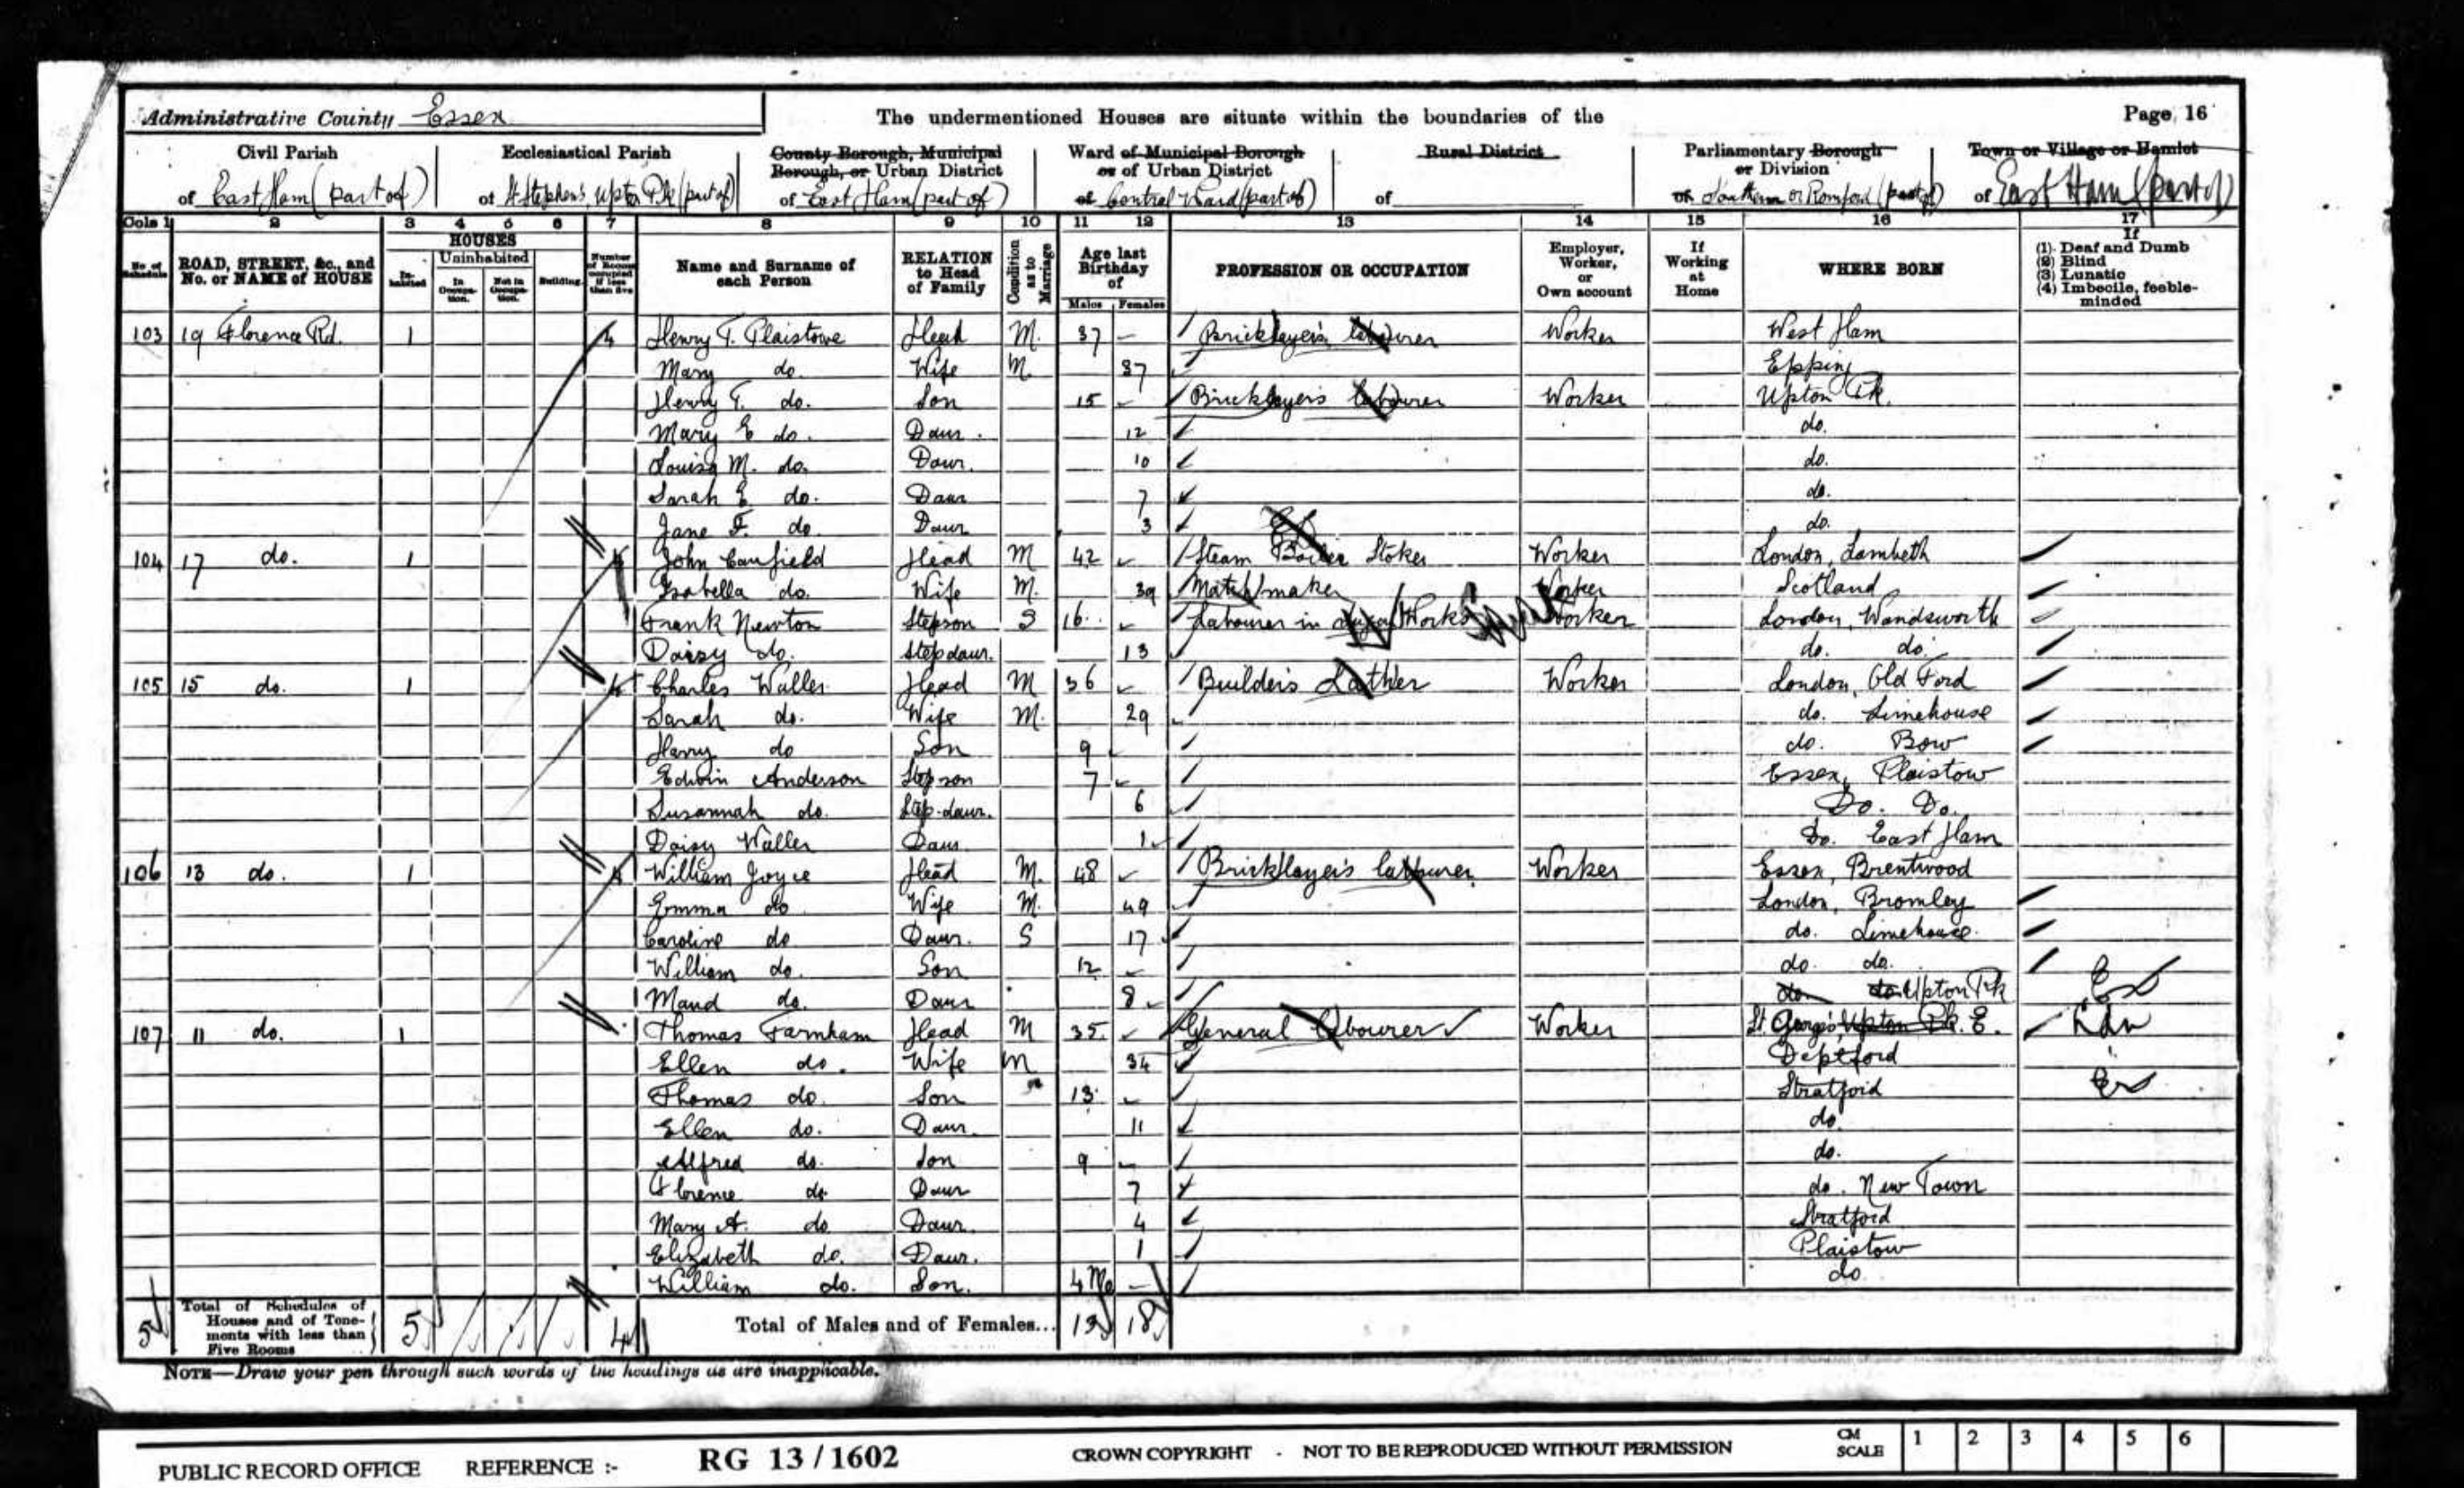 Administrative County Essex
The undermentioned Houses are situate within the boundaries of the
Page 16
Civil Parish of East Ham (part of)
Ecclesiastical Parish of St Stephen's, Upton Pk (part of)
County Borough, Municipal Borough, or Urban District of East Ham (part of)
Ward of Municipal Borough or of Urban District of Central Ward (part of)
Rural District of
Parliamentary Borough or Division of Southern or Romford (part of)
Town or Village or Hamlet of East Ham (part of)
Cols 1 2 3 4 5 6 7 8 9 10 11 12 13 14 15 16 17
No. of Schedule
ROAD, STREET, &c., and No. or NAME of HOUSE
HOUSES
Inhabited
Uninhabited
In Occupation.
Not in Occupation.
Building.
Number of Rooms occupied if less than five
Name and Surname of each Person
RELATION to Head of Family
Condition as to Marriage
Age last Birthday of
Males Females
PROFESSION OR OCCUPATION
Employer, Worker, or Own account
If Working at Home
WHERE BORN
If
(1) Deaf and Dumb
(2) Blind
(3) Lunatic
(4) Imbecile, feeble-minded
103 19 Florence Rd. 1 4 Henry T. Plaistowe Head M. 37 Bricklayer's labourer Worker West Ham
Mary do. Wife M 37 Epping
Henry T. do. Son 15 Bricklayer's labourer Worker Upton Pk.
Mary E do. Daur. 12 do.
Louisa M. do. Daur. 10 do.
Sarah E do. Daur 7 do.
Jane F. do. Daur 3 do.
104 17 do. 1 4 John Canfield Head M 42 Steam Boiler Stoker Worker London, Lambeth
Isabella do. Wife M. 39 Match maker Worker Scotland
Frank Newton Stepson S 16 Labourer in Works Worker London, Wandsworth
Daisy do. Step daur. 13 do. do.
105 15 do. 1 4 Charles Waller Head M 36 Builder's Lather Worker London, Old Ford
Sarah do. Wife M. 29 do. Limehouse
Harry do Son 9 do. Bow
Edwin Anderson Stepson 7 Essex, Plaistow
Susannah do. Step-daur. 6 Do. Do.
Daisy Waller Daur 1 Do. East Ham
106 13 do. 1 4 William Joyce Head M. 48 Bricklayer's labourer Worker Essex, Brentwood
Emma do Wife M. 49 London, Bromley
Caroline do Daur. S 17 do. Limehouse
William do. Son 12 do. do.
Maud do. Daur 8 do. do. Upton Pk Ess
107 11 do. 1 Thomas Farnham Head M 35 General labourer Worker St. George's, Upton Pk. E. Ldn
Ellen do. Wife M 34 Deptford
Thomas do. Son 13 Stratford
Ellen do. Daur. 11 do.
Alfred do. Son 9 do.
Florence do. Daur 7 do. New Town
Mary A. do Daur. 4 Stratford
Elizabeth do. Daur. 1 Plaistow
William do. Son. 4 Mo do
5 Total of Schedules of Houses and of Tenements with less than Five Rooms 5 4 Total of Males and of Females... 13 18
NOTE—Draw your pen through such words of the headings as are inapplicable.
PUBLIC RECORD OFFICE REFERENCE :- RG 13 / 1602 CROWN COPYRIGHT - NOT TO BE REPRODUCED WITHOUT PERMISSION CM SCALE 1 2 3 4 5 6